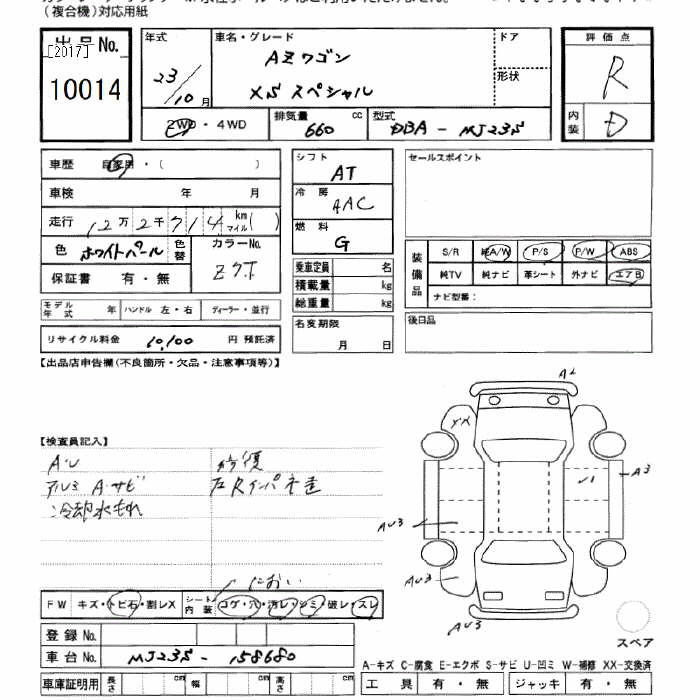 （複合機）対応用紙
出品No.
[2017]
10014
年式
23/10月
車名・グレード
AZワゴン
XS スペシャル
ドア
形状
評価点
R
内装
D
2WD・4WD
排気量
660 cc
型式
DBA - MJ23S
車歴 自家用・（ ）
車検 年 月
走行 12万2千714 km マイル( )
色 ホワイトパール 色替
カラーNo.
ZQT
保証書 有・無
シフト
AT
冷房
AAC
燃料
G
乗車定員 名
積載量 kg
総重量 kg
セールスポイント
装備品
S/R 純A/W P/S P/W ABS
純TV 純ナビ 革シート 外ナビ エアB
ナビ型番：
モデル年式 年 ハンドル 左・右 ディーラー・並行
名変期限
月 日
後日品
リサイクル料金 10,100 円 預託済
【出品店申告欄(不良箇所・欠品・注意事項等)】
【検査員記入】
A・U
アルミ A・サビ
冷却水もれ
修復
左Rインパネ歪
におい
FW キズ・トビ石・割レX シート内装 コゲ・穴・汚レ・シミ・破レ・スレ
登録No.
車台No. MJ23S - 158680
車庫証明用 長さ cm 幅 cm 高さ cm
A2
XX
A3
U1
AU3
AU3
AU3
スペア
A-キズ C-腐食 E-エクボ S-サビ U-凹ミ W-補修 XX-交換済
工具 有・無 ジャッキ 有・無